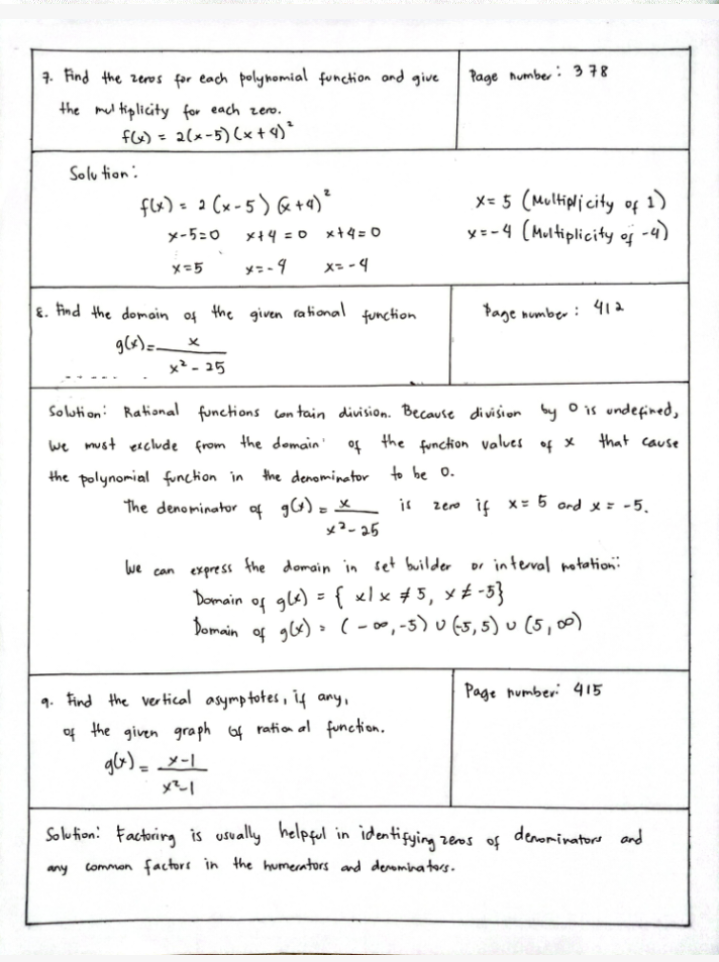 7. Find the zeros for each polynomial function and give
the multiplicity for each zero.
f(x) = 2(x-5)(x+4)²
Page number: 378
Solution:
f(x) = 2(x-5)(x+4)²
x-5=0 x+4=0 x+4=0
x=5 x=-4 x=-4
x=5 (Multiplicity of 1)
x=-4 (Multiplicity of -4)
8. Find the domain of the given rational function
g(x)= x
x²-25
Page number: 412
Solution: Rational functions contain division. Because division by 0 is undefined,
we must exclude from the domain of the function values of x that cause
the polynomial function in the denominator to be 0.
The denominator of g(x) = x is zero if x=5 and x=-5.
x²-25
We can express the domain in set builder or interval notation:
Domain of g(x) = {x|x≠5, x≠-5}
Domain of g(x) = (-∞,-5) ∪ (-5,5) ∪ (5,∞)
9. Find the vertical asymptotes, if any,
of the given graph of rational function.
g(x) = x-1
x²-1
Page number: 415
Solution: Factoring is usually helpful in identifying zeros of denominators and
any common factors in the numerators and denominators.